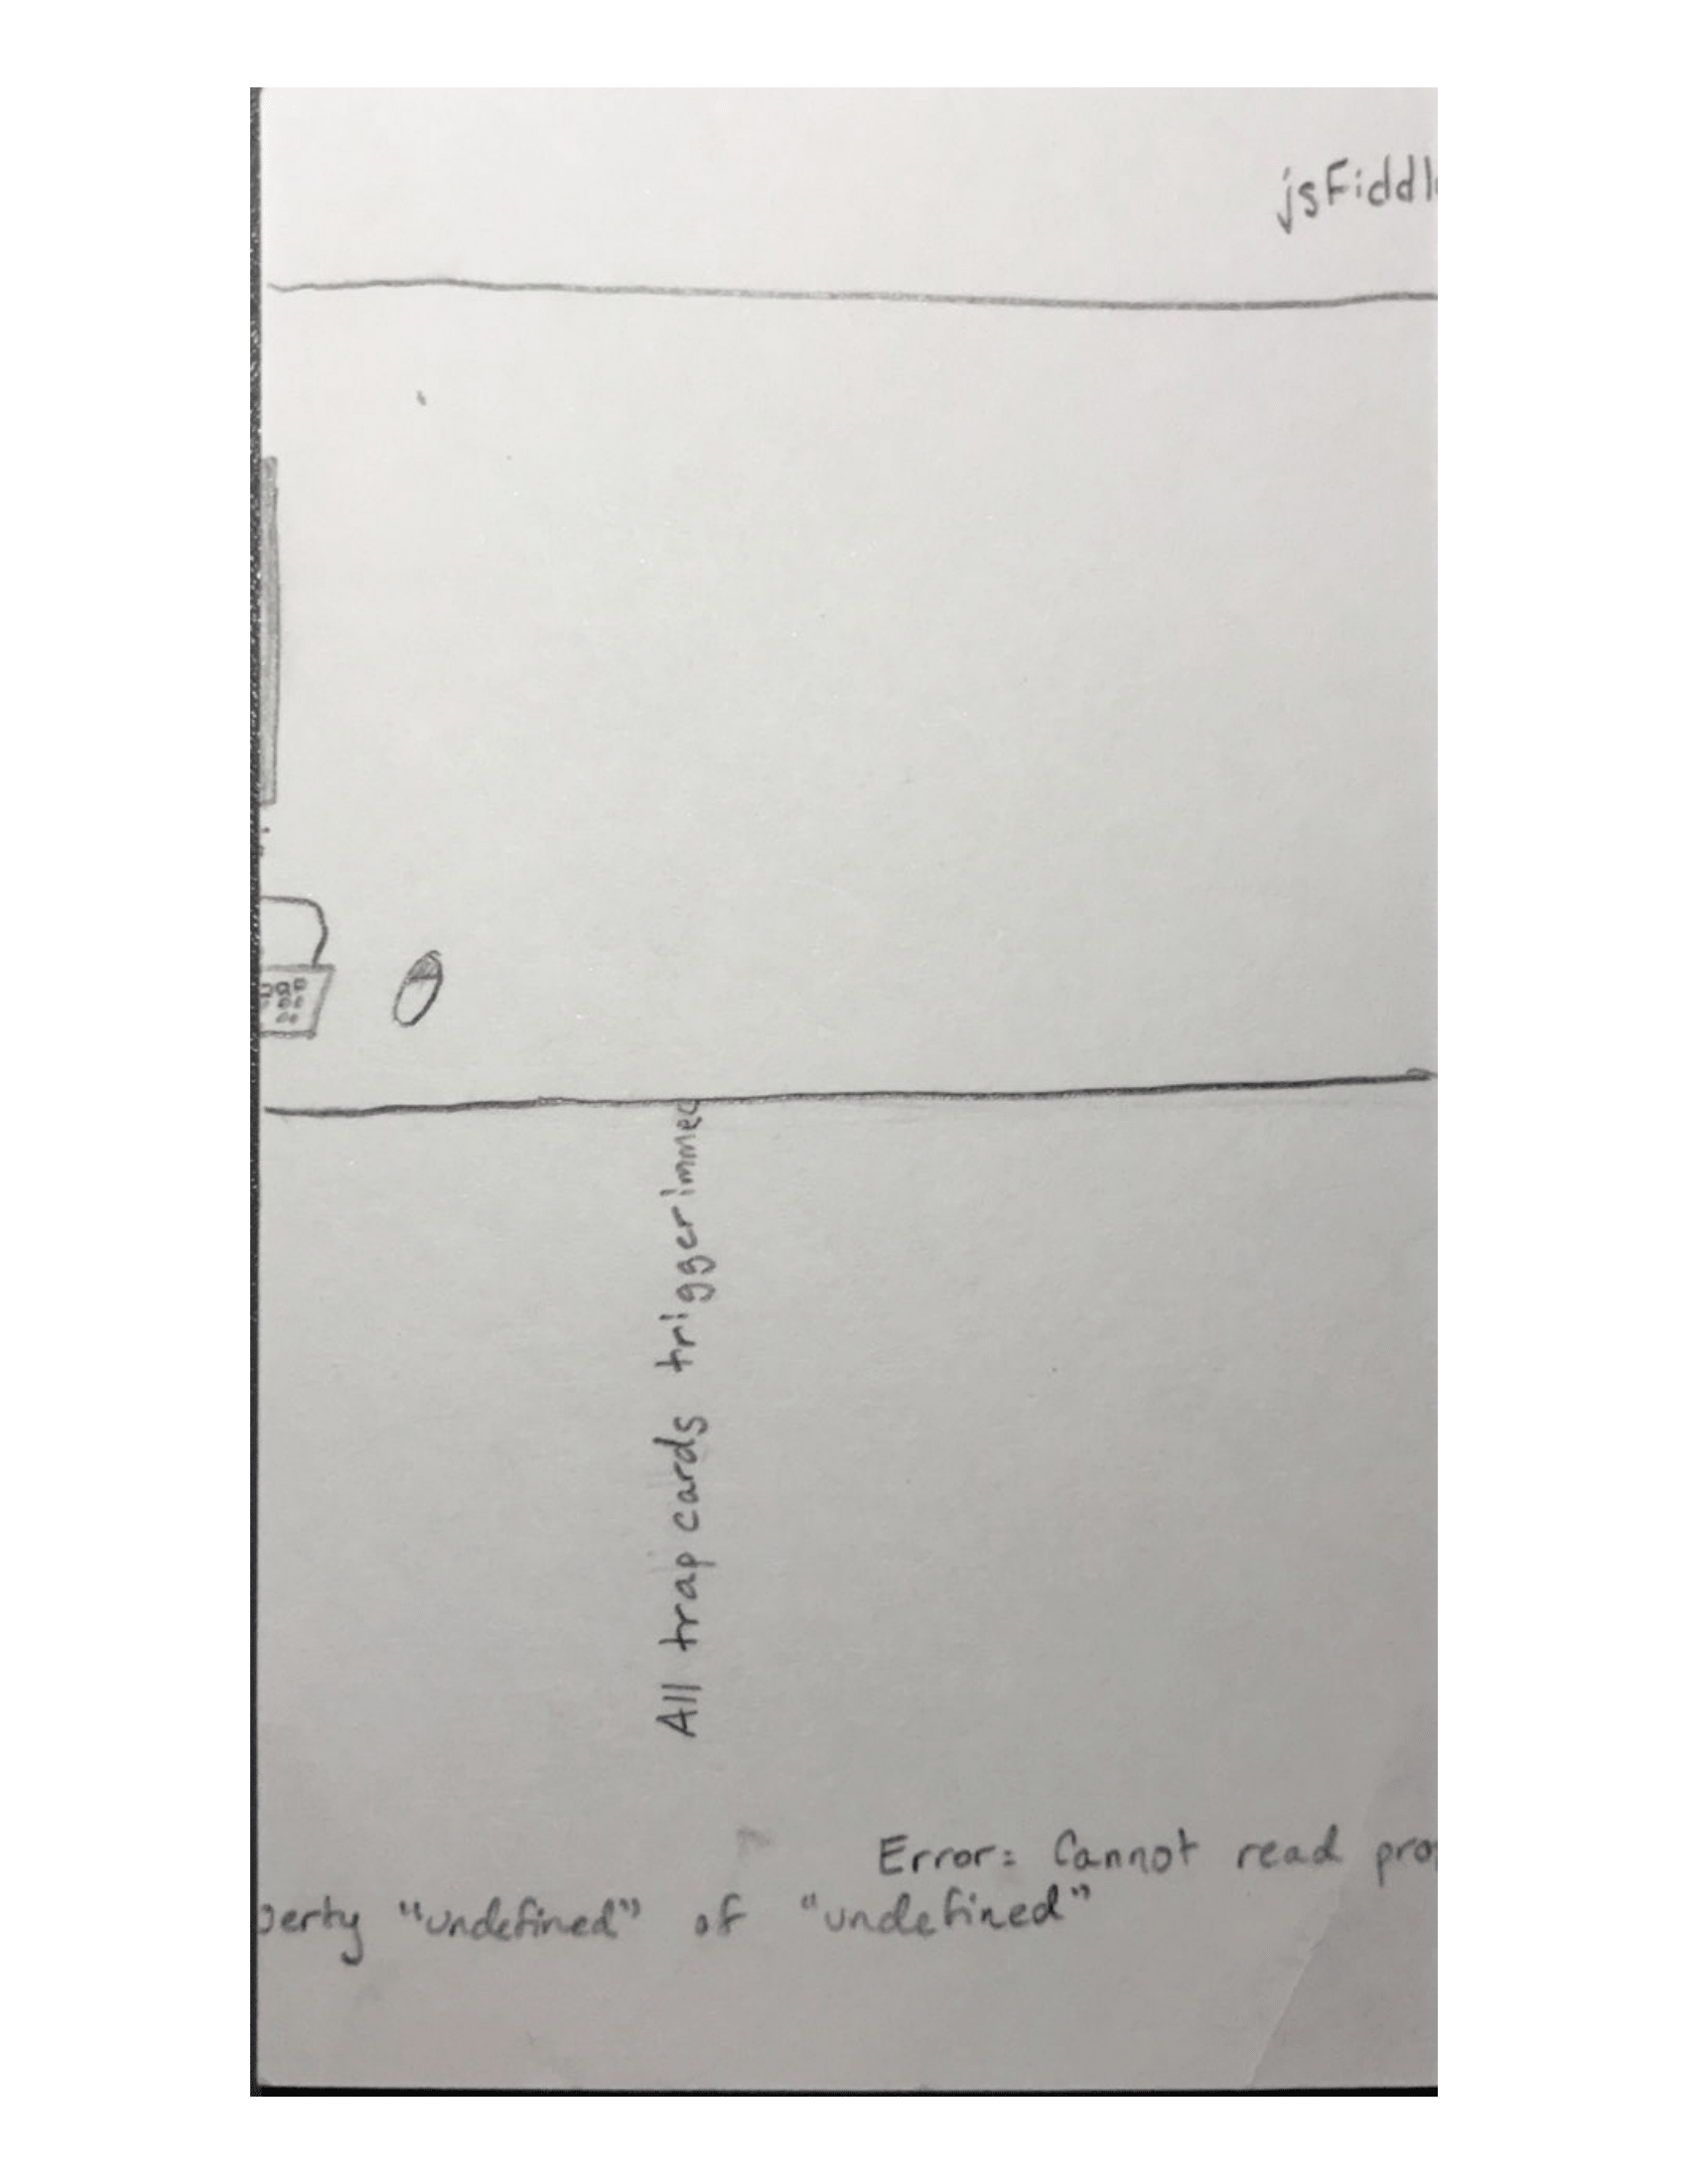 jsFiddl
All trap cards trigger immed
Error: Cannot read pro
perty "undefined" of "undefined"